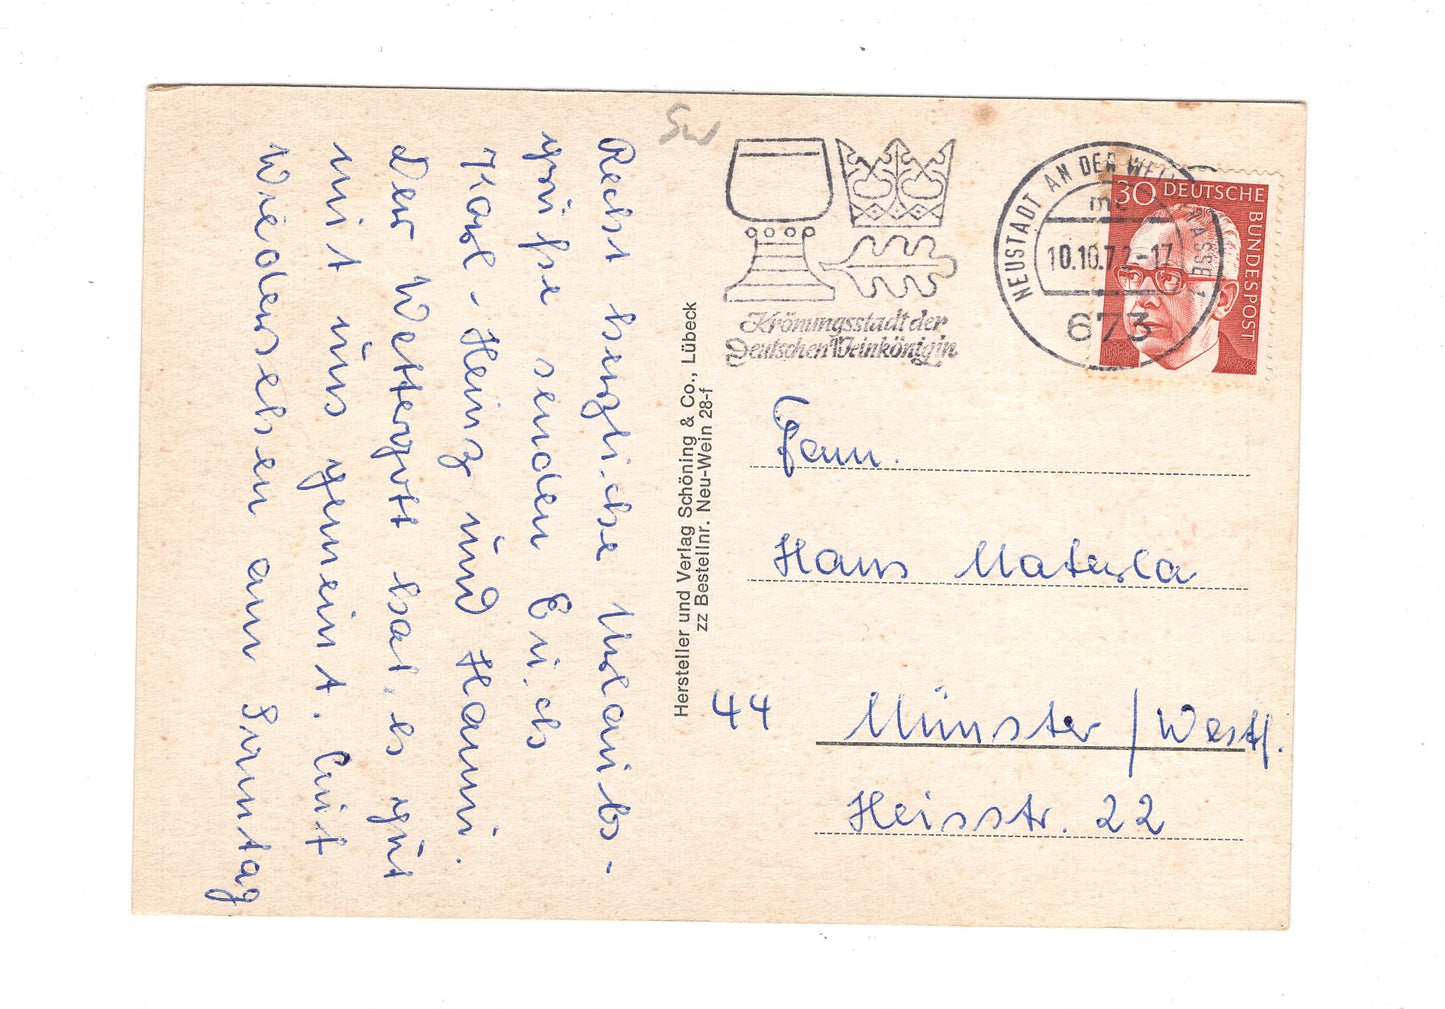 Recht herzliche Urlaubs-
grüße senden Euch
Karl-Heinz und Hanni.
Der Wettergott hat es gut
mit uns gemeint. Auf
Wiedersehen am Sonntag
Sw
Krönungsstadt der
Deutschen Weinkönigin
NEUSTADT AN DER WEINSTRASSE 1
mc
10.10.72-17
673
30 DEUTSCHE BUNDESPOST
Hersteller und Verlag Schöning & Co., Lübeck
zz Bestellnr. Neu-Wein 28-f
Fam.
Hans Materla
44 Münster/Westf.
Heisstr. 22